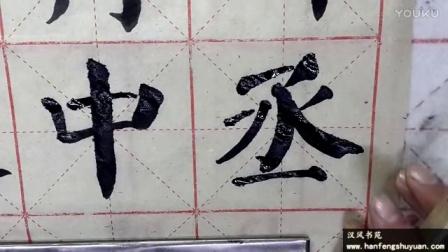 YOUKU
中丞
汉风书苑
www.hanfengshuyuan.com